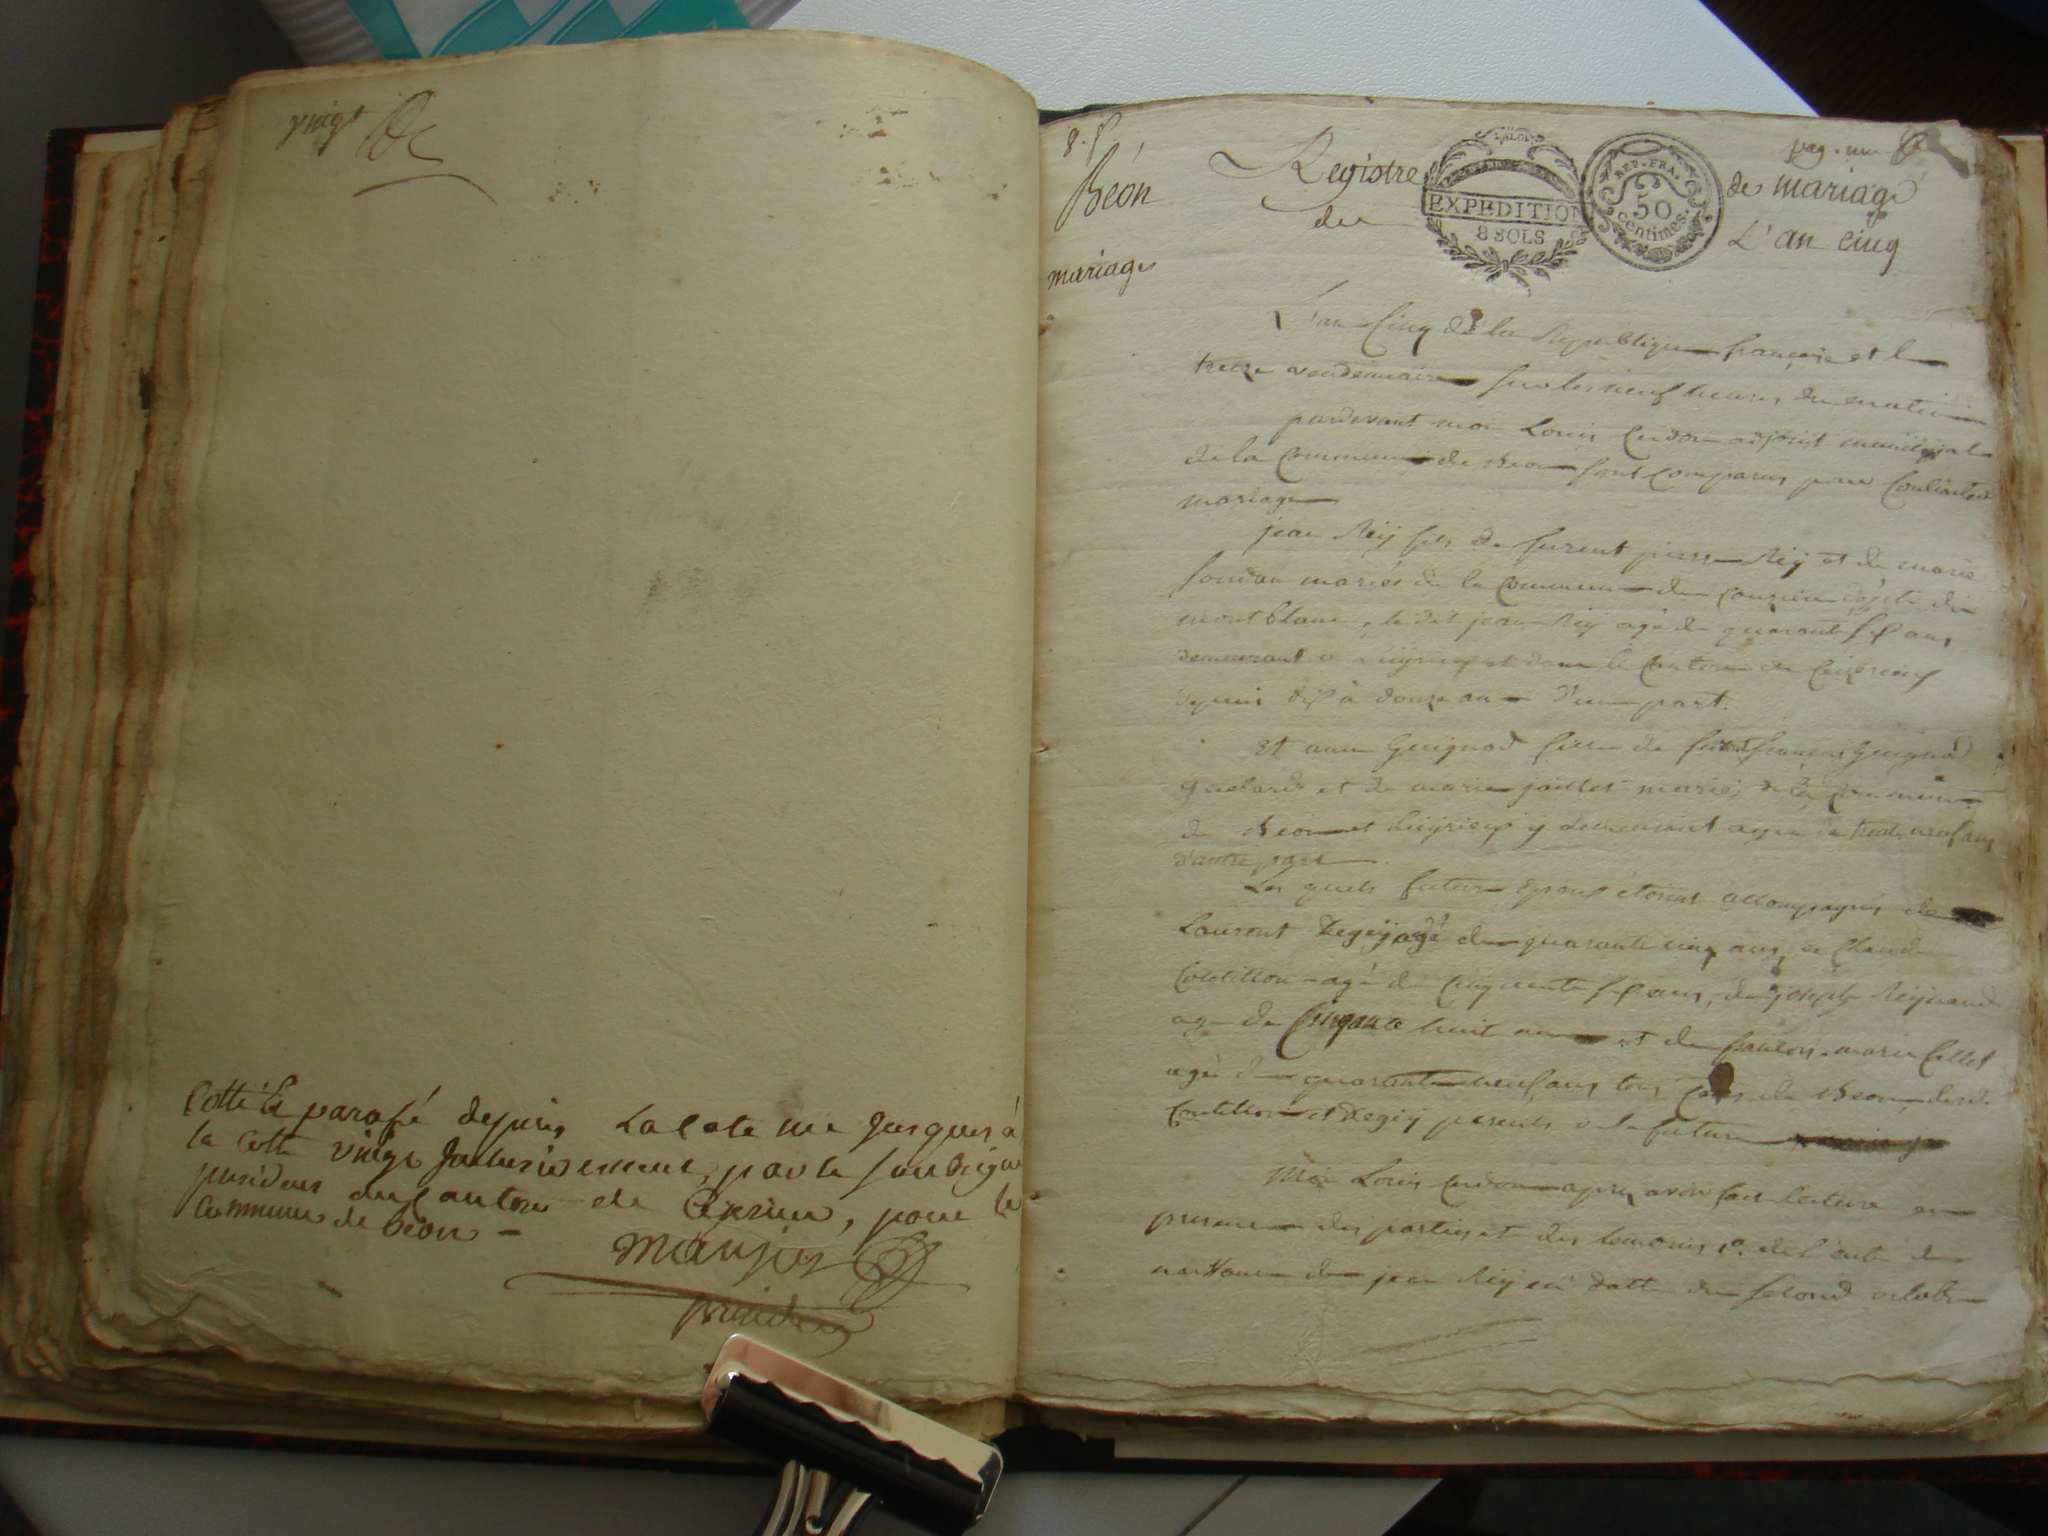 vingt
Cotté & parafé depuis La Cote une Jusques à
la Cotte vingt par le soussigné
président du canton de Ceyzrieu, pour la
Commune de Béon -
président
8. p
pag. une
Béon
Registre de mariage
VALOI
EXPEDITION
8 SOLS
REP. FRA.
50
centimes.
du L'an cinq
mariage
L'an Cinq de la Republique française et le
treize vendemiaire sur les neuf heures du matin
pardevant moi Louis Cerdon adjoint municipal
de la Commune de Beon sont comparus pour Contracter
mariage
jean Reij fils de furent pierre Reij et de marie
mariés de la Commune de dept. du
mont blanc, le dit jean Reij agé de quarante sept ans
demeurant a Luijrieux et dans le Canton de Ceizerieux
depuis dix à douze ans d'une part.
Et anne Guignod fille de françois Guignod
et de marie jaillet mariés de la Commune
de Beon et Luijrieux y demeurant agée de trente neuf ans
d'autre part
Les quels futurs Epoux étoient accompagnés de
Laurent Degeij agé de quarante cinq ans, de Claude
Coutillon agé de cinquante sept ans, de joseph Reijnaud
agé de Cinquante huit ans et de marie Callet
agé de quarante neuf ans tous de Beon,
Coutillon et Degeij parents a la future
Moi Louis Cerdon apres avoir fait lecture en
presence des parties et des temoins 1º. de l'acte de
naissance de jean Reij en datte du second octobre